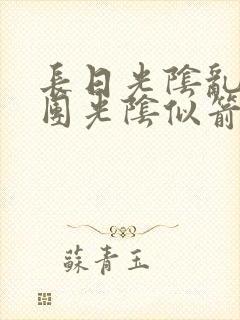 長日光陰亂
團光陰似箭
蘇青玉